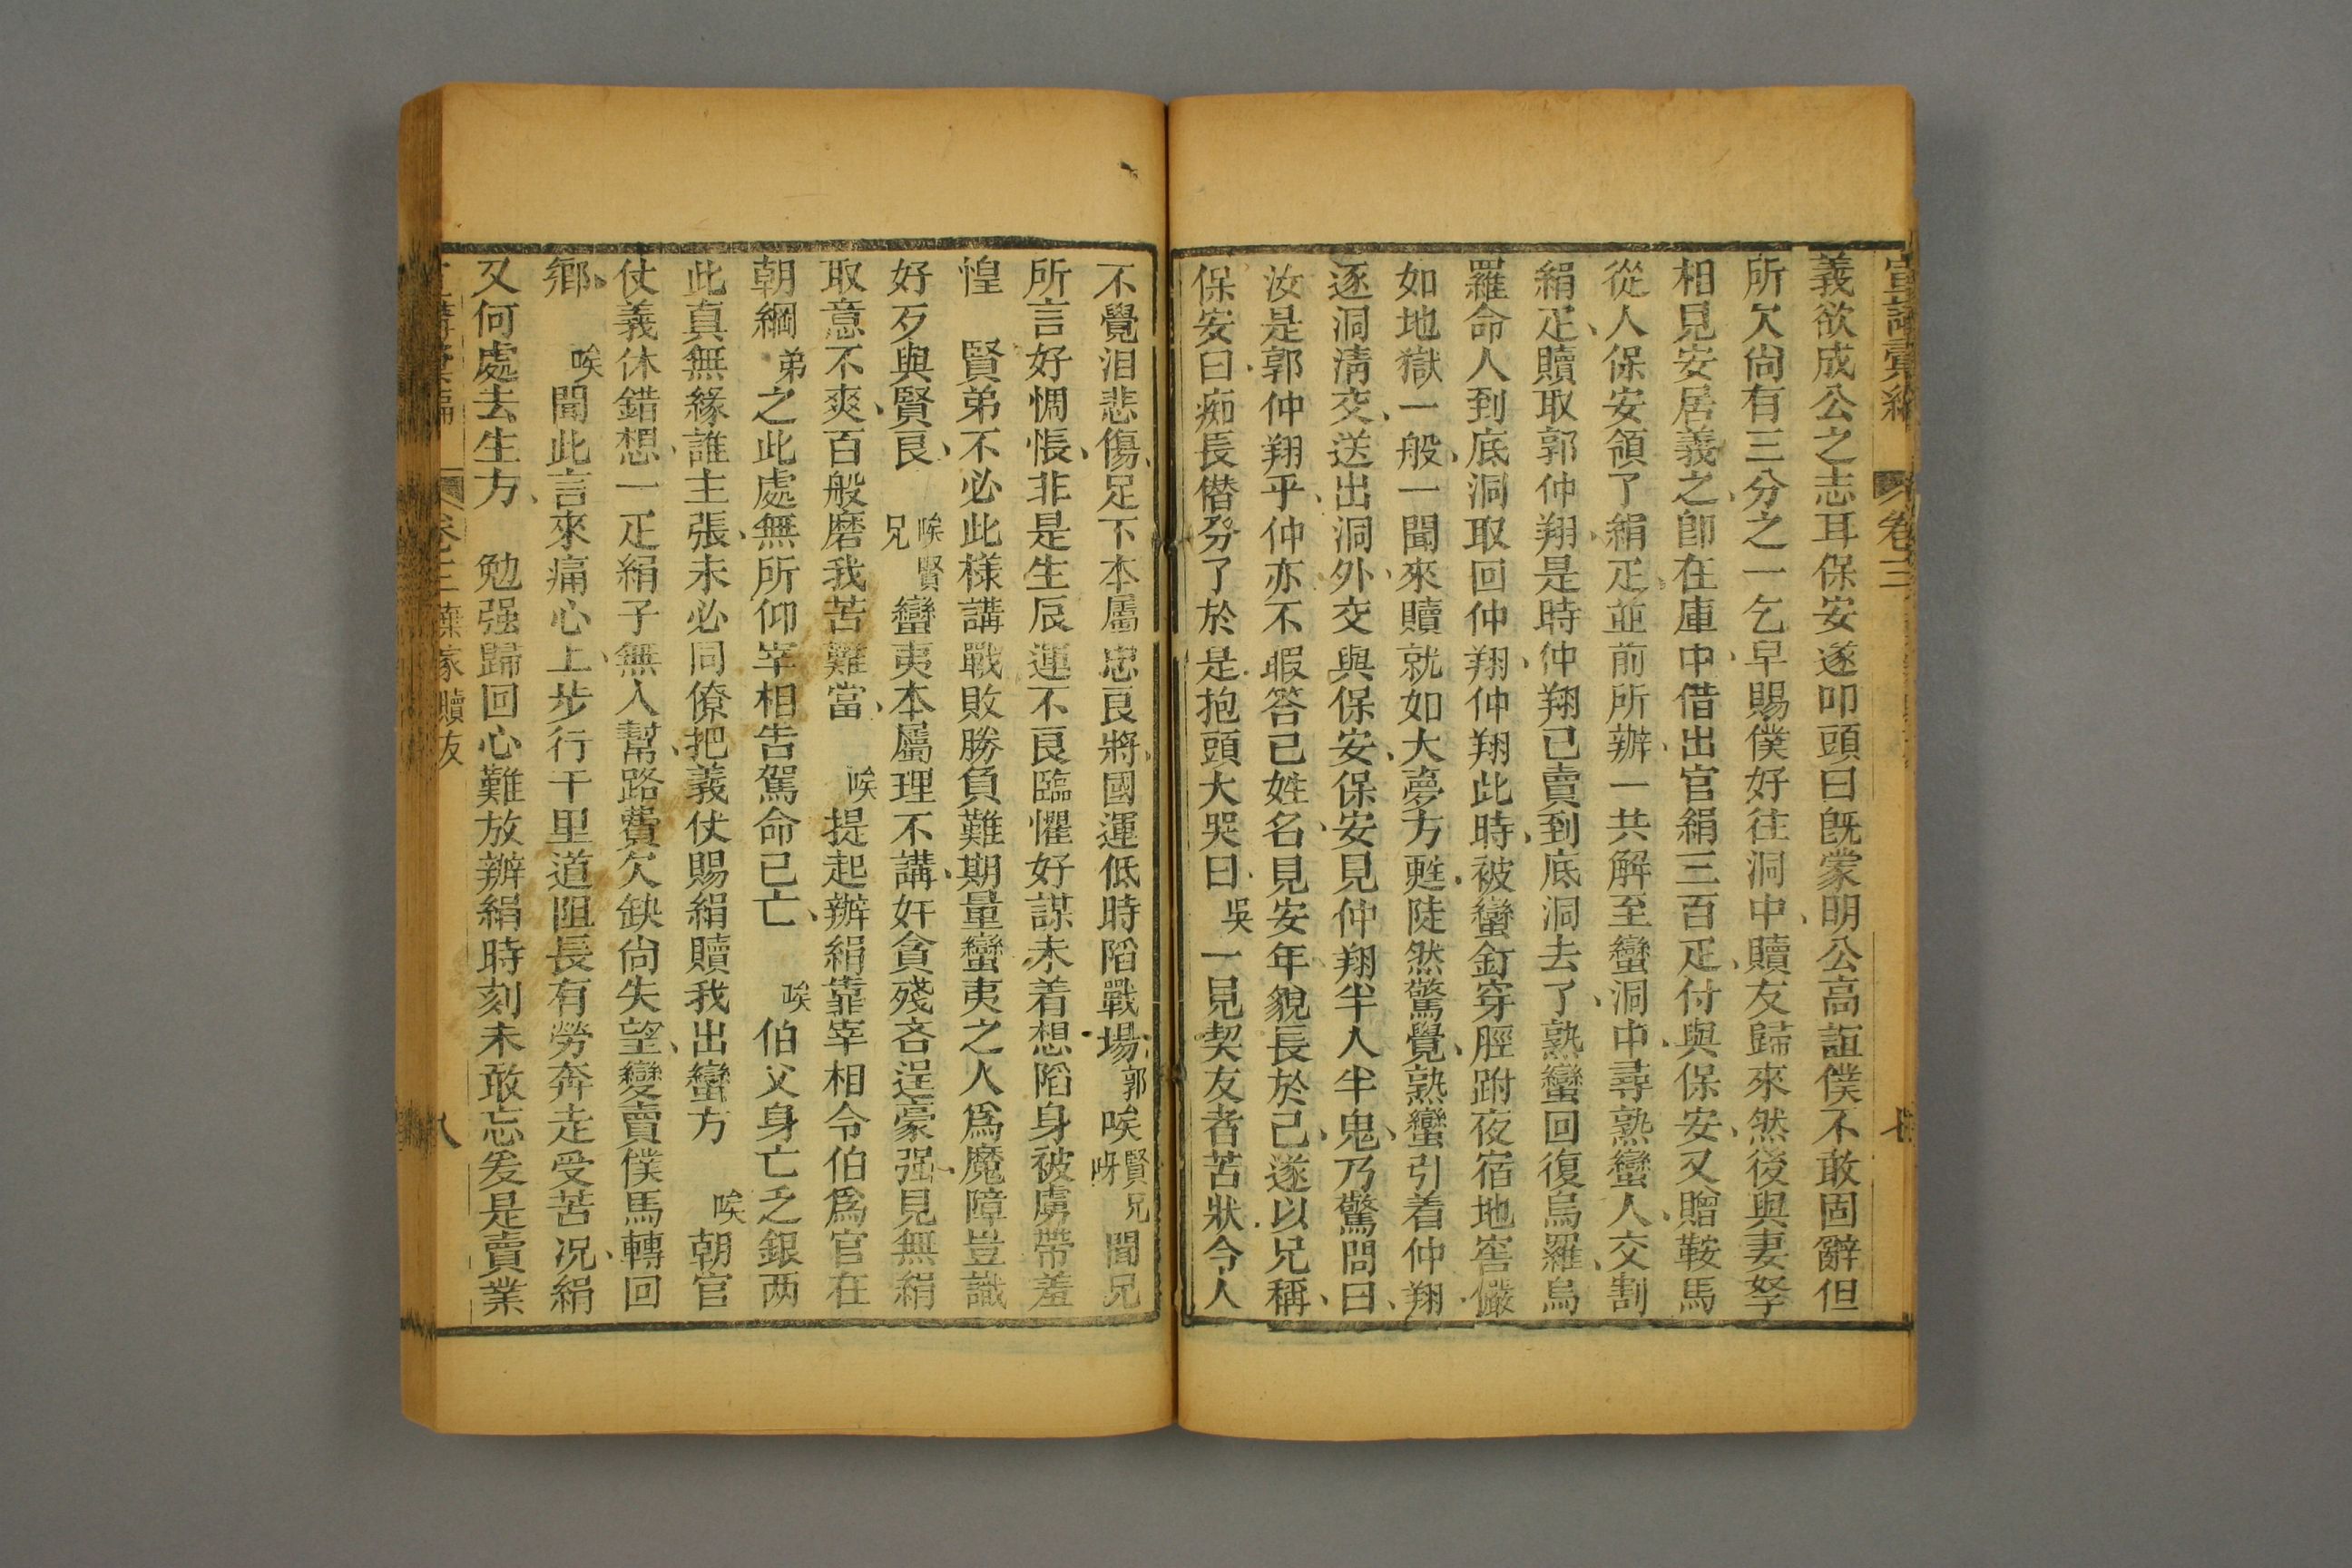 宣講彙編 卷三 七
義欲成公之志耳保安遂叩頭曰旣蒙明公高誼僕不敢固辭但
所欠尙有三分之一乞早賜僕好往洞中、贖友歸來然後與妻孥
相見安居義之、卽在庫中、借出官絹三百疋、付與保安、又贈鞍馬
從人保安領了絹疋、並前所辦、一共解至蠻洞中、尋熟蠻人、交割
絹疋、贖取郭仲翔、是時仲翔已賣到底洞去了、熟蠻回復烏羅、烏
羅命人到底洞取回仲翔、仲翔此時、被蠻釘穿脛跗夜宿地窖、儼
如地獄一般、一聞來贖就如大夢方甦、陡然驚覺、熟蠻引着仲翔、
逐洞淸交、送出洞外、交與保安、保安見仲翔半人半鬼、乃驚問曰、
汝是郭仲翔乎、仲亦不暇答己姓名、見安年貌長於己、遂以兄稱、
保安曰、痴長僣分了於是、抱頭大哭曰、吳一見契友者苦狀、令人
不覺泪悲傷、足下本屬忠良將、國運低時陷戰場、郭唉賢兄呀聞兄
所言好惆悵、非是生辰運不良臨懼好謀未着想、陷身被虜帶羞
惶 賢弟不必此樣講戰敗勝負難期量蠻夷之人爲魔障豈識
好歹與賢良、 唉賢兄蠻夷本屬理不講、奸貪殘吝逞豪强、見無絹
取意不爽、百般磨我苦難當、 唉提起辦絹靠宰相令伯爲官在
朝綱 弟之此處無所仰宰相告駕命已亡、 唉伯父身亡乏銀两
此真無緣誰主張、未必同僚把義仗賜絹贖我出蠻方 唉朝官
仗義休錯想、一疋絹子無人幫、路費欠缺尙失望、變賣僕馬轉回
鄕、 唉聞此言來痛心上、步行千里道阻長有勞奔走受苦况、絹
又何處去生方、 勉强歸回心難放辦絹時刻未敢忘爰是賣業
卷三 贖友 八